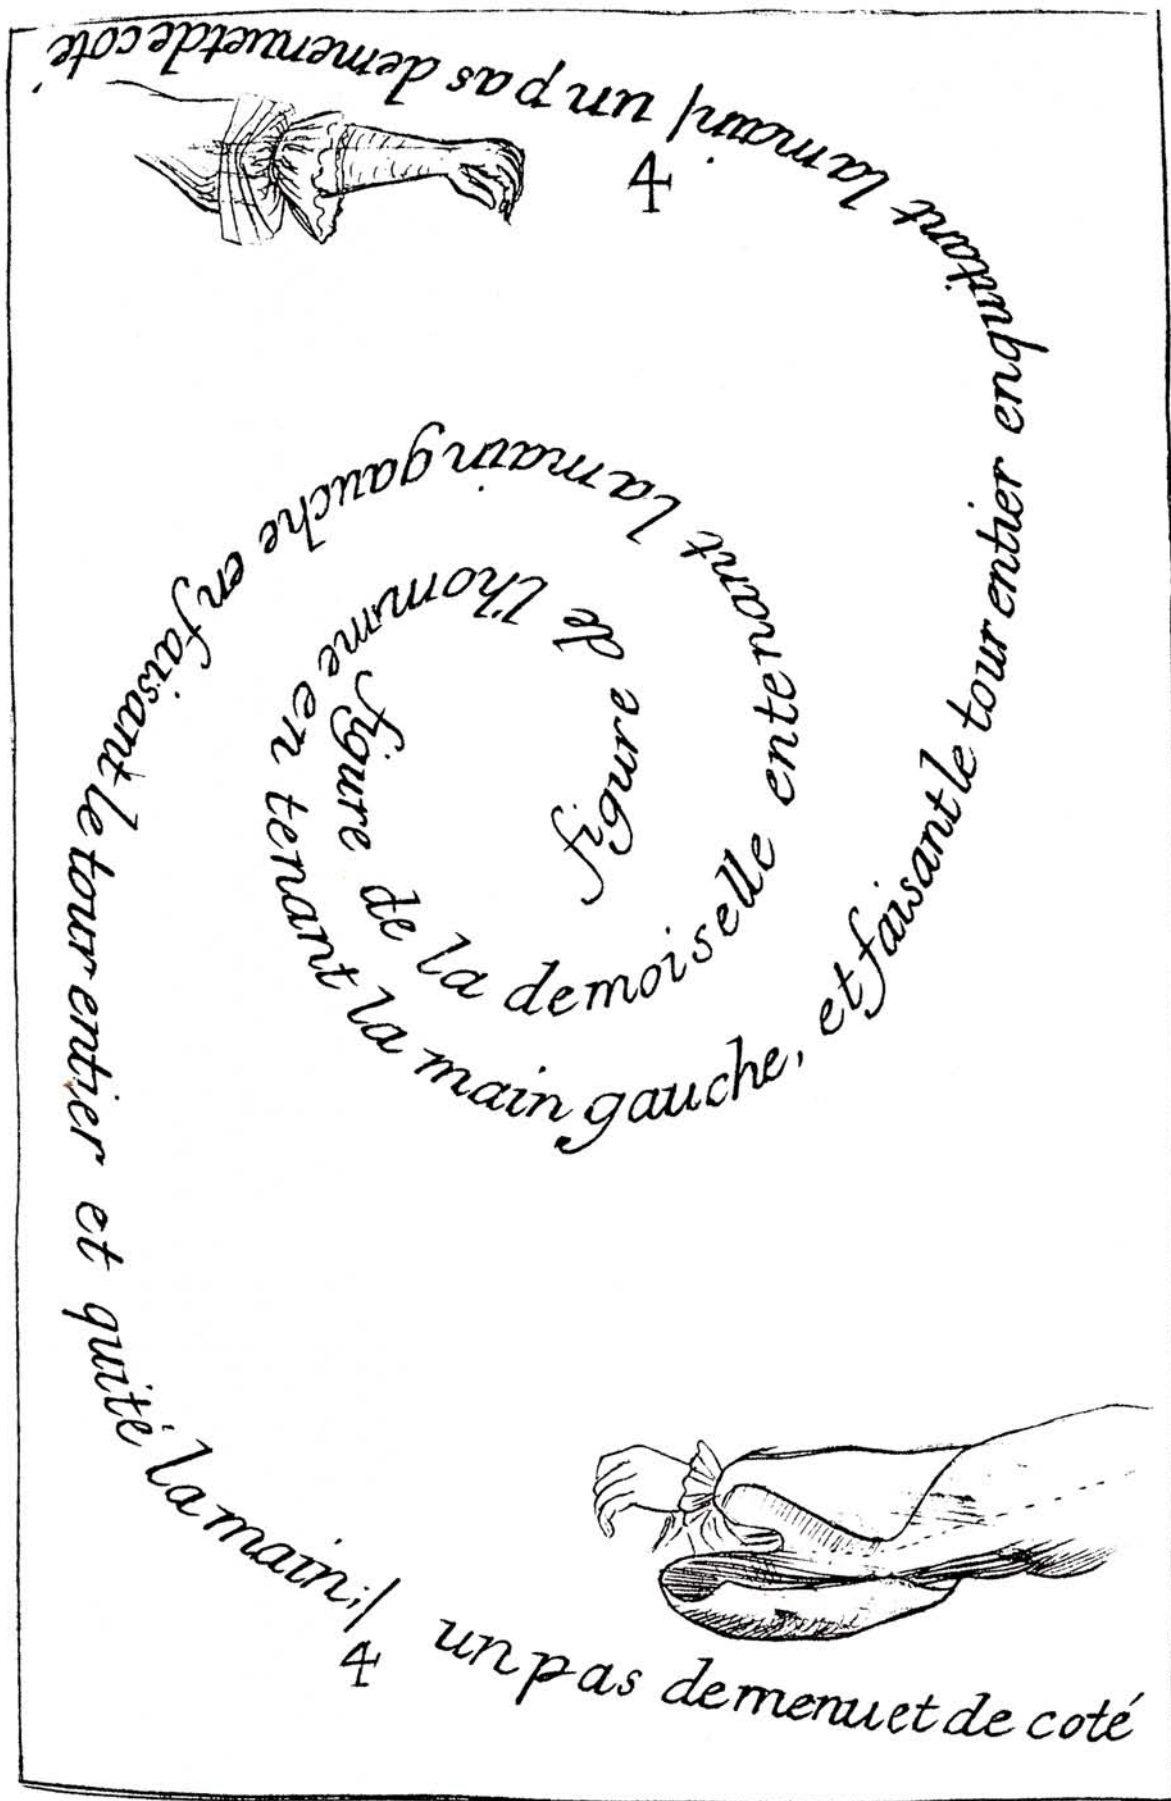 figure de l'homme en tenant la main gauche, et faisant le tour entier enquitant la main;/ un pas demenuet de coté
4
figure de la demoiselle entenant la main gauche en faisant le tour entier et quité la main;/ un pas demenuet de coté
4